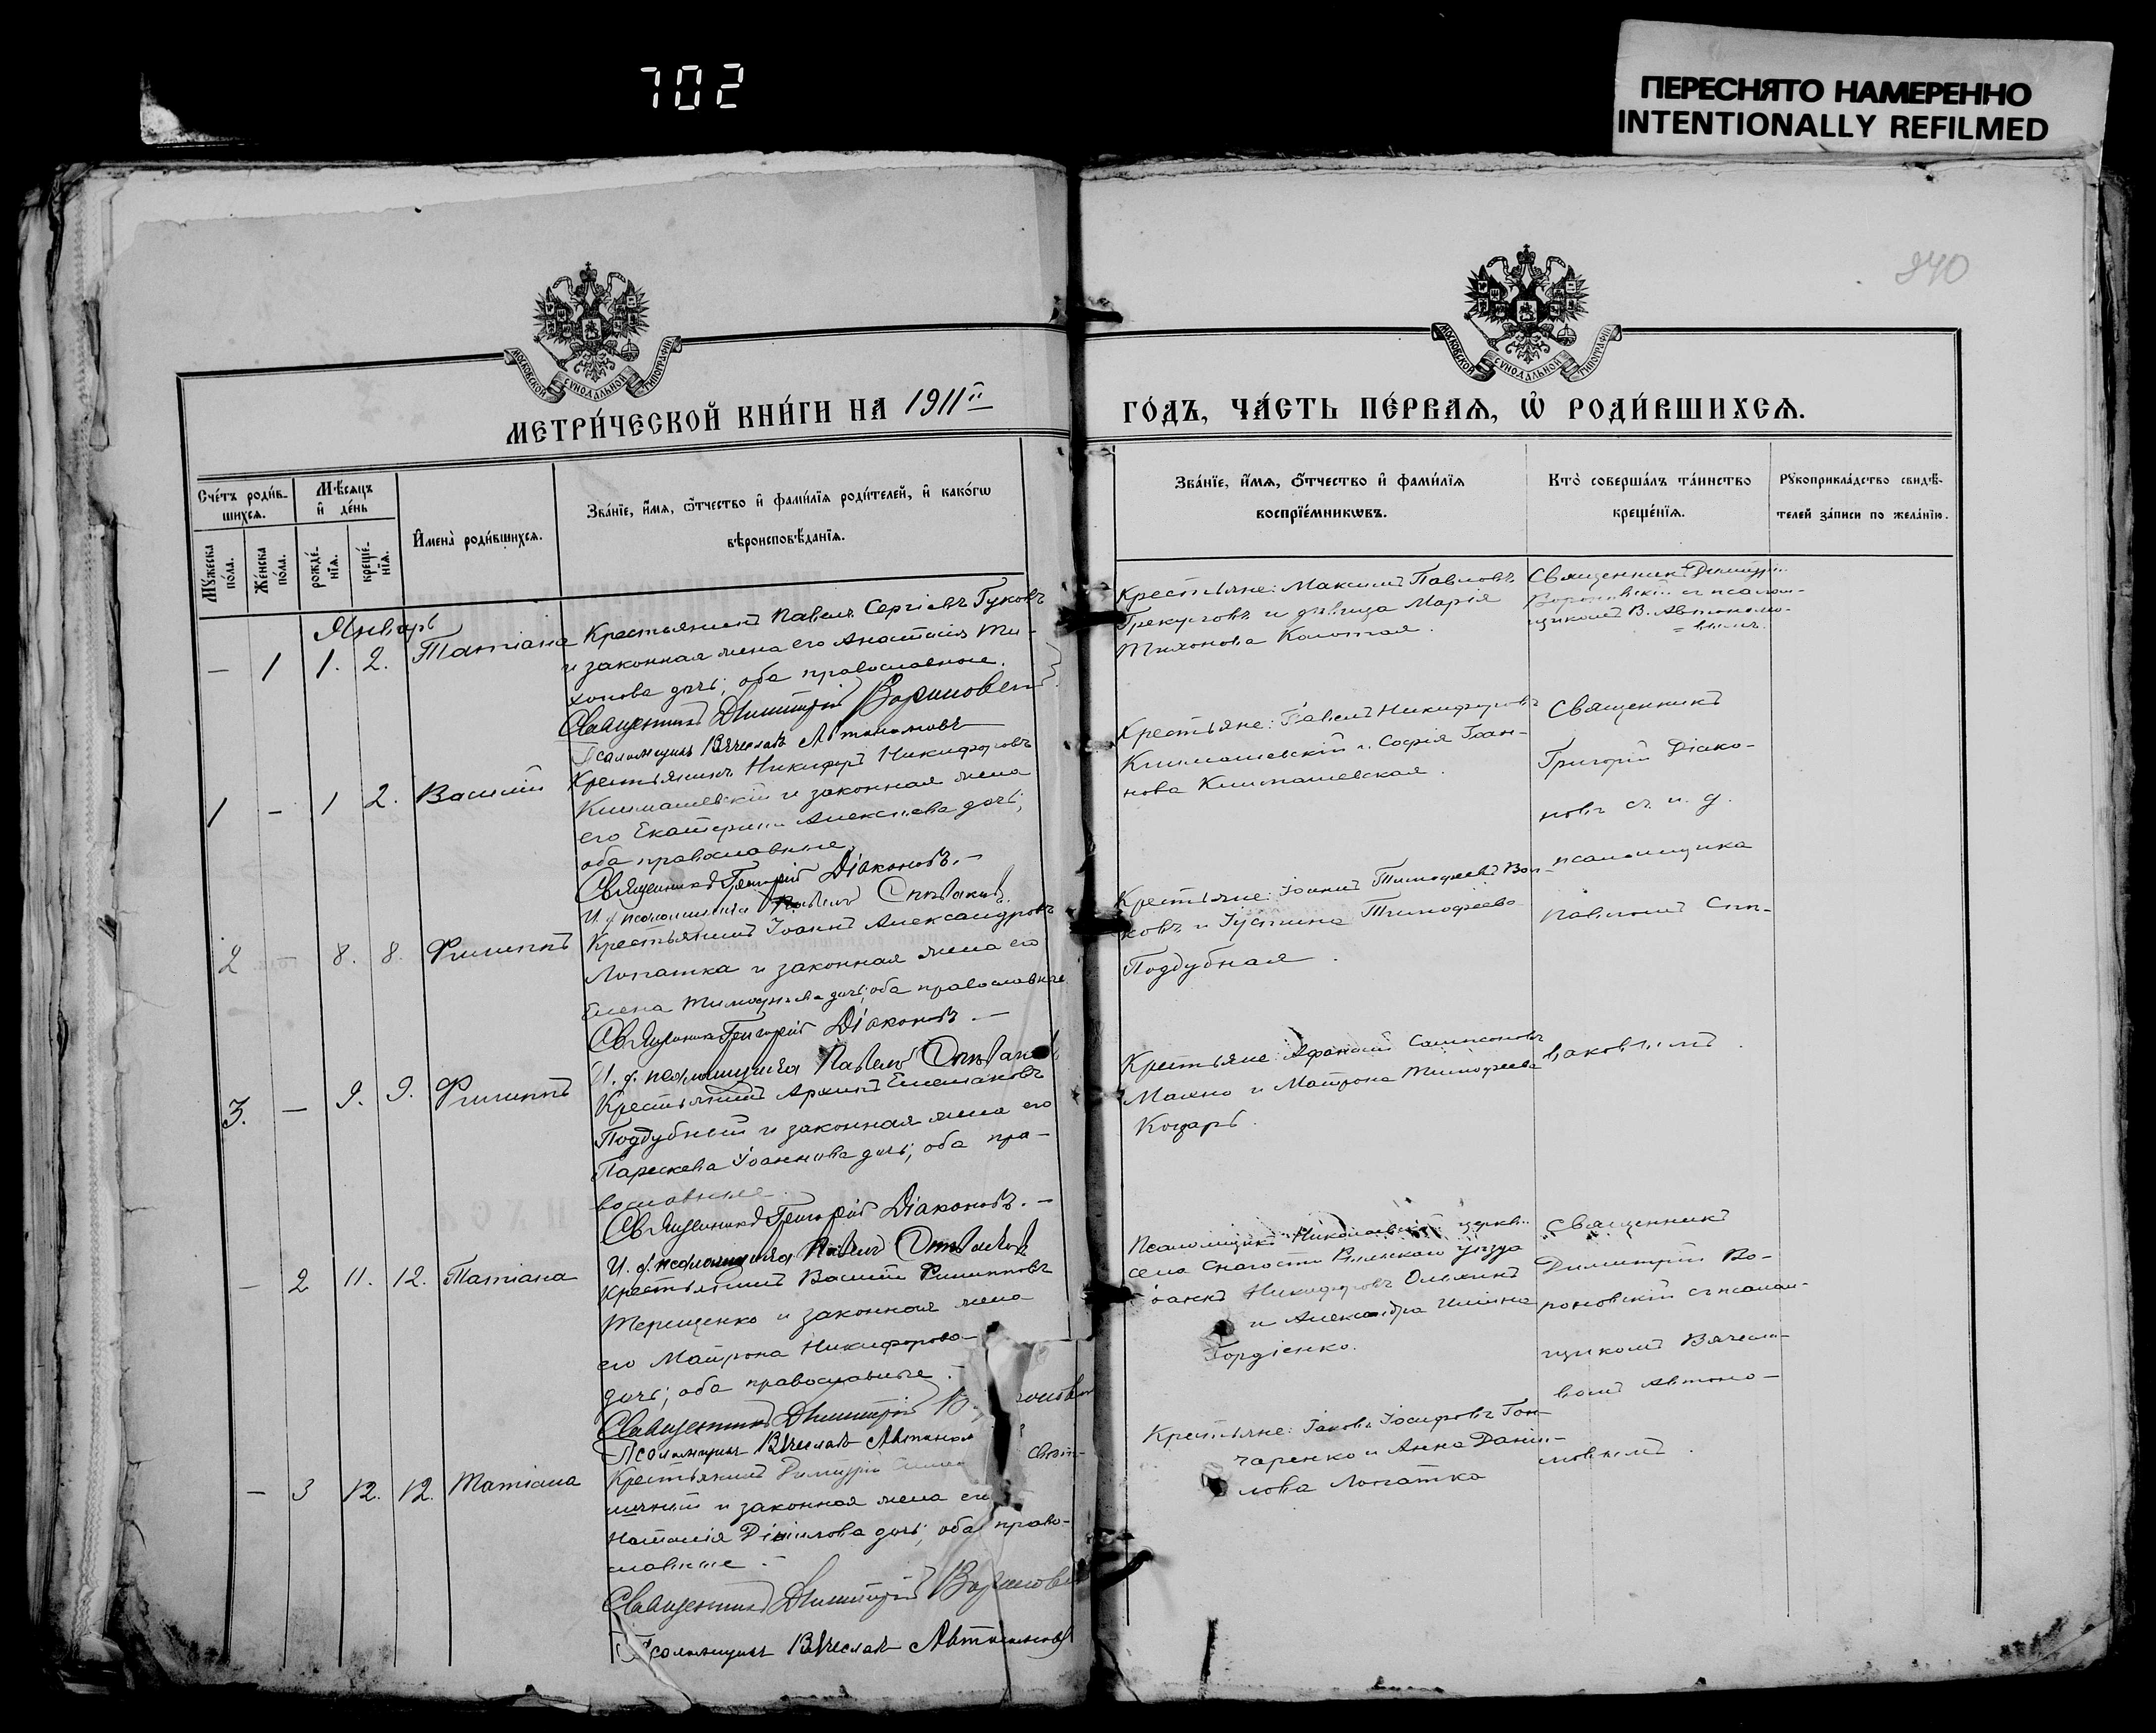 702
ПЕРЕСНЯТО НАМЕРЕННО
INTENTIONALLY REFILMED
940
МОСКОВСКОЙ СѴНОДАЛЬНОЙ ТИПОГРАФІИ
МОСКОВСКОЙ СѴНОДАЛЬНОЙ ТИПОГРАФІИ
МЕТРИ́ЧЕСКОЙ КНИ́ГИ НА 1911й
ГО́ДЪ, ЧА́СТЬ ПЕ́РВАЯ, Ѡ҆ РОДИ́ВШИХСЯ.
Сче́тъ роди́в-
шихся.
Мꙋ́жеска по́ла.
Же́нска по́ла.
Мѣ́сяцъ
и҆ де́нь
рожде́-
нїя.
креще́-
нїя.
И҆мена̀ роди́вшихся.
Зва́нїе, и҆́мя, ѻ҆́тчество и҆ фами́лїя роди́телей, и҆ како́гѡ
вѣроисповѣ́данїя.
Зва́нїе, и҆́мя, ѻ҆́тчество и҆ фами́лїя
воспрїе́мникѡвъ.
Кто̀ соверша́лъ та́инство
креще́нїя.
Рꙋкоприкла́дство свидѣ́-
телей за́писи по жела́нїю.
Январь
— 1 1. 2. Татіана
Крестьянинъ Павелъ Сергіевъ Гуковъ
и законная жена его Анастасія Ти-
хонова дочь; оба православные.
Священникъ Димитрій Вороновскій
Псаломщикъ Вячеславъ Автономовъ
Крестьяне: Максимъ Павловъ
и дѣвица Марія
Тихонова
Священникъ Димитрій
Вороновскій съ псалом-
щикомъ В. Автономо-
=вымъ.
1 — 1 2. Василій
Крестьянинъ Никифоръ Никифоровъ
Климашевскій и законная жена
его Екатерина Алексѣева дочь;
оба православные.
Священникъ Григорій Діаконовъ. —
И. д. псаломщика Павелъ Спѣваковъ.
Крестьяне: Павелъ Никифоровъ
Климашевскій и Софія Іоан-
нова Климашевская.
Священникъ
Григорій Діако-
новъ съ и. д.
псаломщика
Павломъ Спѣ-
ваковымъ.
2 — 8. 8. Филиппъ
Крестьянинъ Іоаннъ Александровъ
Лопатка и законная жена его
Елена Тимофѣева дочь; оба православные
Священникъ Григорій Діаконовъ. —
И. д. псаломщика Павелъ Спѣваковъ
Крестьяне: Іоаннъ Тимофеевъ Вол-
ковъ и Іустина Тимофеева
Поддубная.
3. — 9. 9. Филиппъ
Крестьянинъ Архипъ
Поддубный и законная жена его
Параскева Іоаннова дочь; оба пра-
вославные.
Священникъ Григорій Діаконовъ. —
И. д. псаломщика Павелъ Спѣваковъ
Крестьяне: Афанасій Самсоновъ
Махно и Матрона Тимофеева
Коцарь.
— 2 11. 12. Татіана
Крестьянинъ Василій Филипповъ
Терещенко и законная жена
его Матрона Никифорова
дочь; оба православные.
Священникъ Димитрій
Псаломщикъ Вячеславъ Автоном
Псаломщикъ Николаевской церкви
села Снагости Рыльскаго уѣзда
Іоаннъ Никифоровъ
и Александра Ильина
Гордіенко.
Священникъ
Димитрій Во-
роновскій съ псалом-
щикомъ Вячесла-
вомъ Автоно-
мовымъ.
— 3 12. 12. Татіана
Крестьянинъ Димитрій
и законная жена его
Наталія Данілова дочь; оба право-
славные.
Священникъ Димитрій Вороновскій
Псаломщикъ Вячеславъ Автономовъ
Крестьяне: Іаковъ Іосифовъ Гон-
чаренко и Анна Даніи-
лова Лопатка